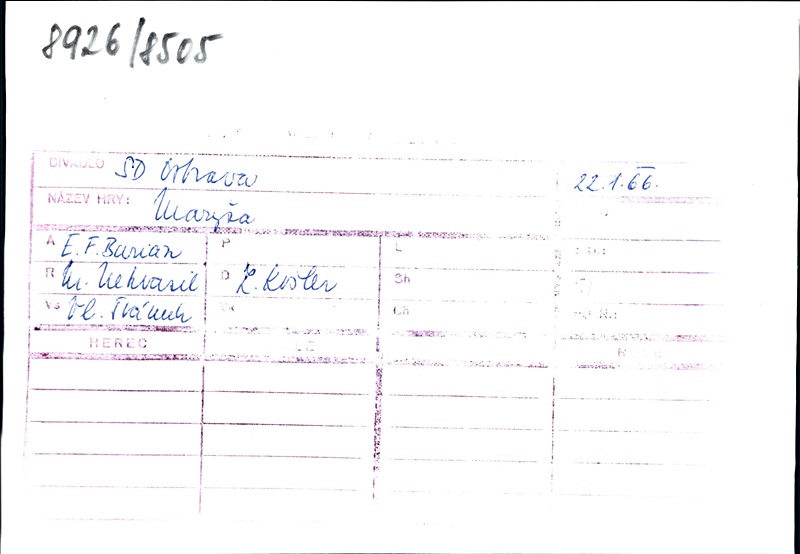 8926/8505
DIVADLO SD Ostrava 22.1.66.
NÁZEV HRY: Maryša
A E. F. Burian P L
R M. Nekvasil D Z. Košler Sh
Vs Vl. Šrámek Ch
HEREC